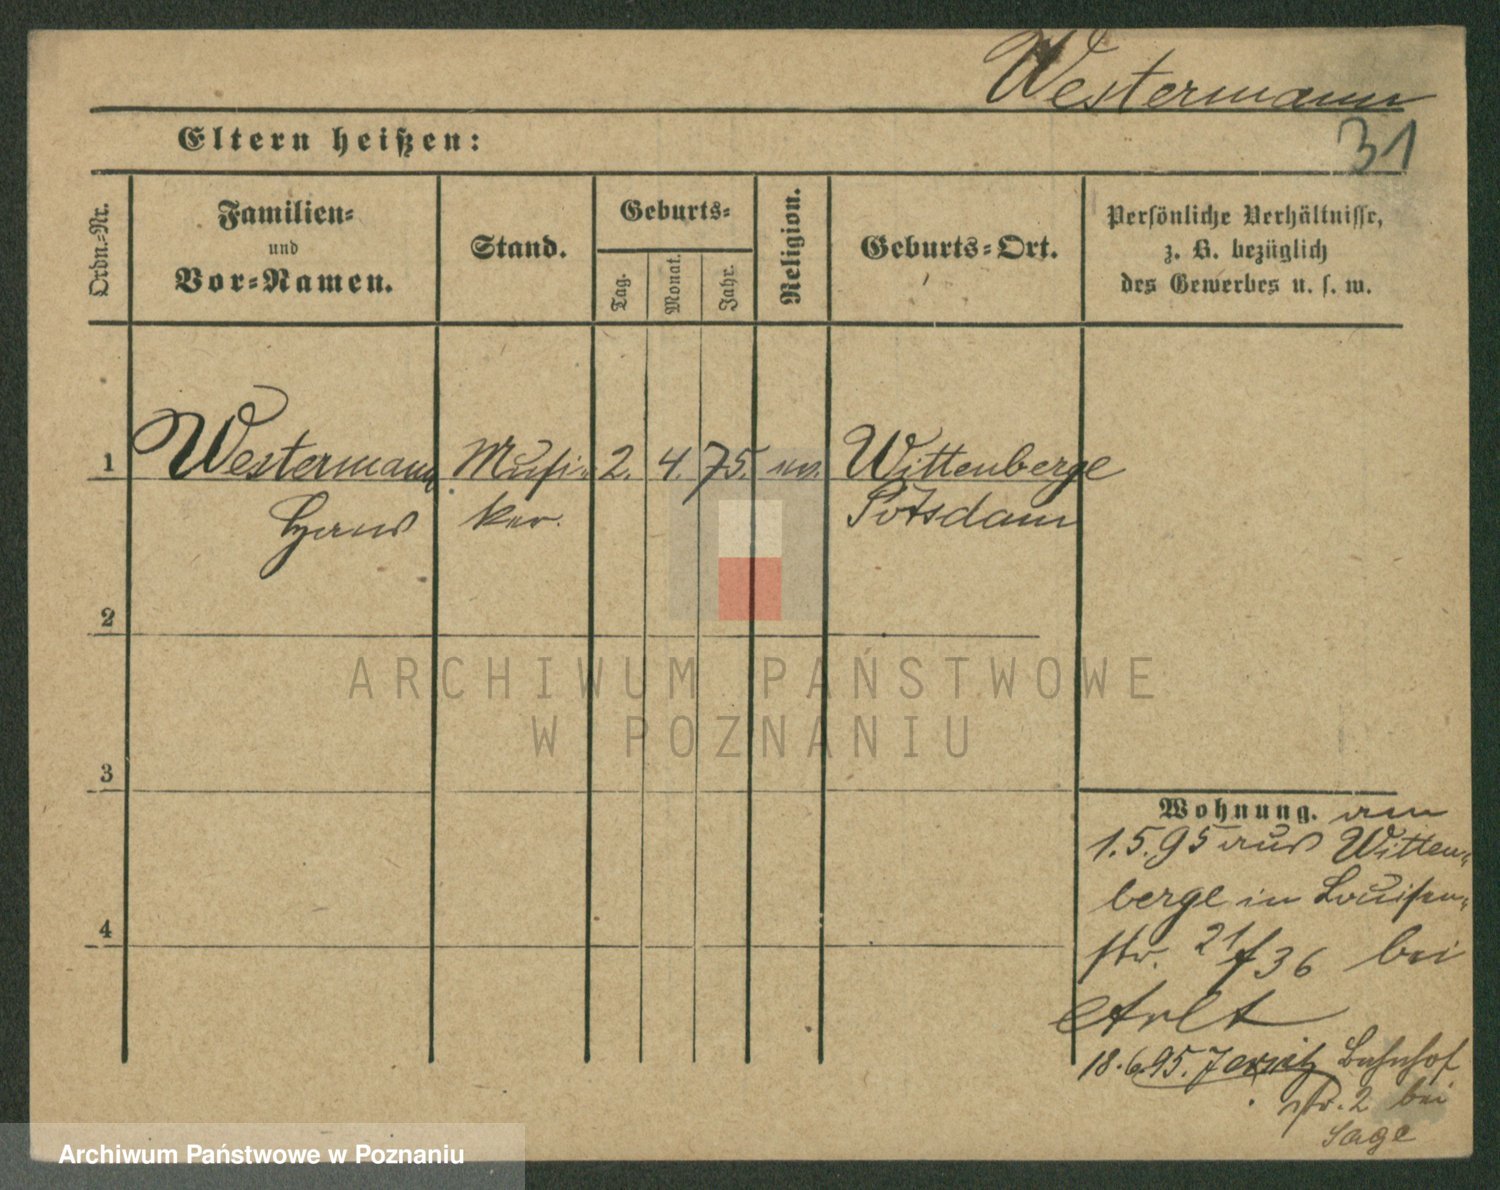 Westermann
31
Eltern heißen:
Ordn.-Nr.
Familien-
und
Vor-Namen.
Stand.
Geburts-
Tag.
Monat.
Jahr.
Religion.
Geburts-Ort.
Persönliche Verhältnisse,
z. B. bezüglich
des Gewerbes u. s. w.
1 Westermann Musi- 2. 4. 75. ev. Wittenberge
Hans ker. Potsdam
2
3
4
Wohnung. am
1.5.95 aus Witten-
berge in Louisen-
str. 21/36 bei
Arlt
18.6.95. Jersitz Bahnhof
str. 2 bei
Sage
ARCHIWUM PAŃSTWOWE
W POZNANIU
Archiwum Państwowe w Poznaniu